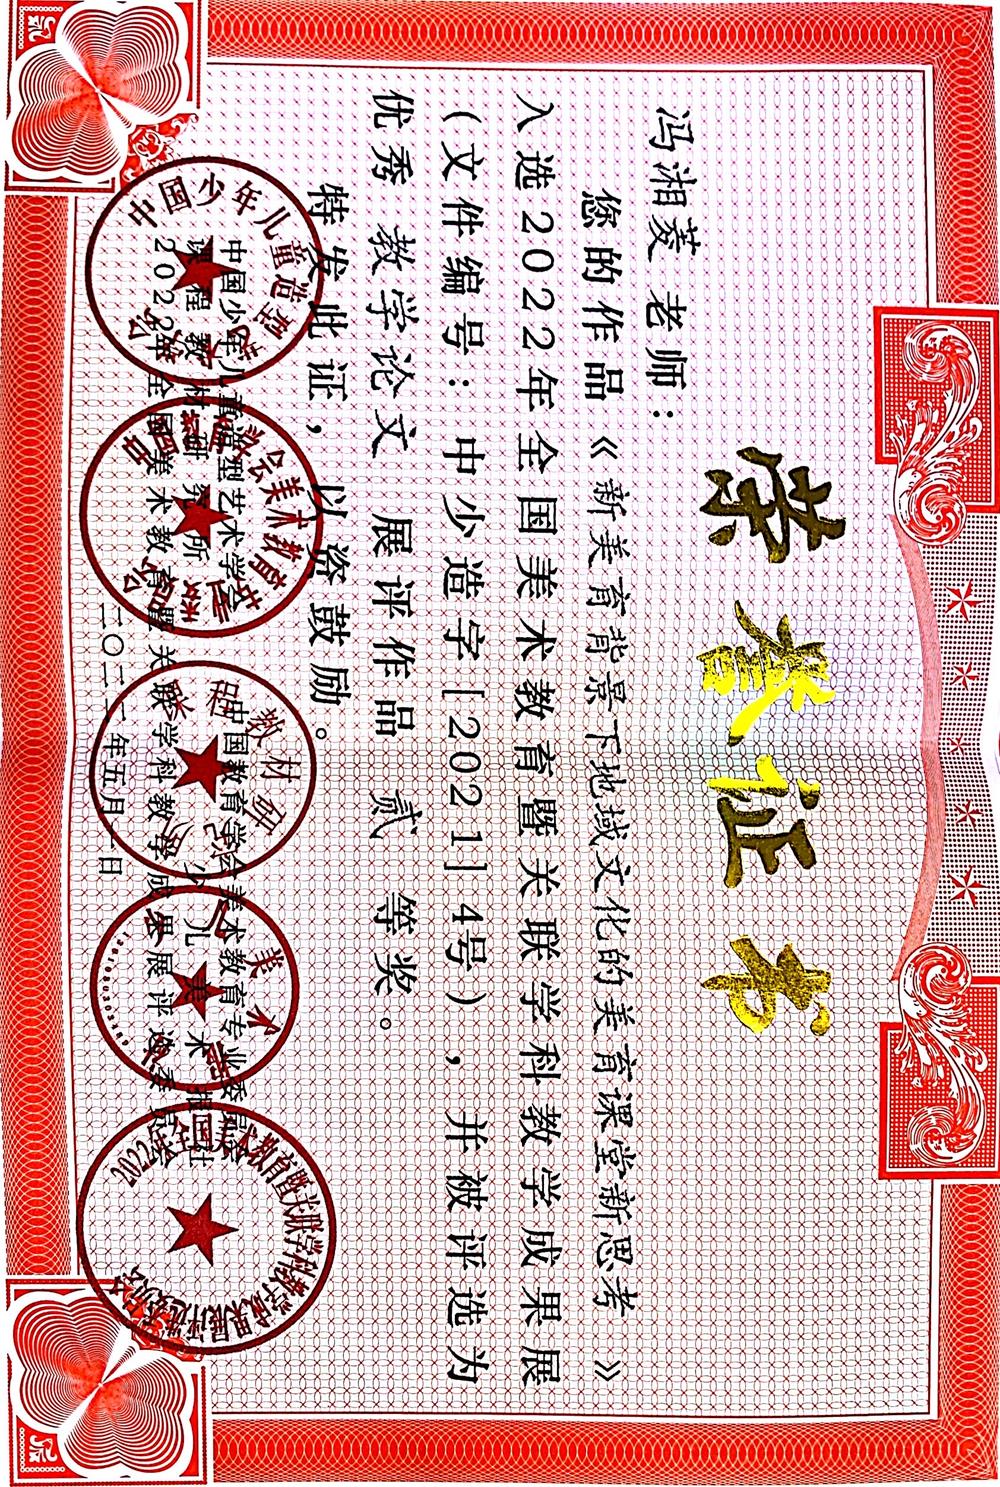 荣誉证书
冯湘菱 老师：
您的作品《新美育背景下地域文化的美育课堂新思考》
入选2022年全国美术教育暨关联学科教学成果展
（文件编号：中少造字[2021]4号），并被评选为
优秀 教学论文 展评作品 贰 等奖。
特发此证，以资鼓励。
中国少年儿童造型艺术学会 中国教育学会美术教育专业委员会
课程教材研究所 少儿美术 报社
2022年全国美术教育暨关联学科教学成果展评选委员会
二〇二二年五月一日
中国少年儿童造型
2022年全国美术教育暨关联学科教学成果展评选委员会